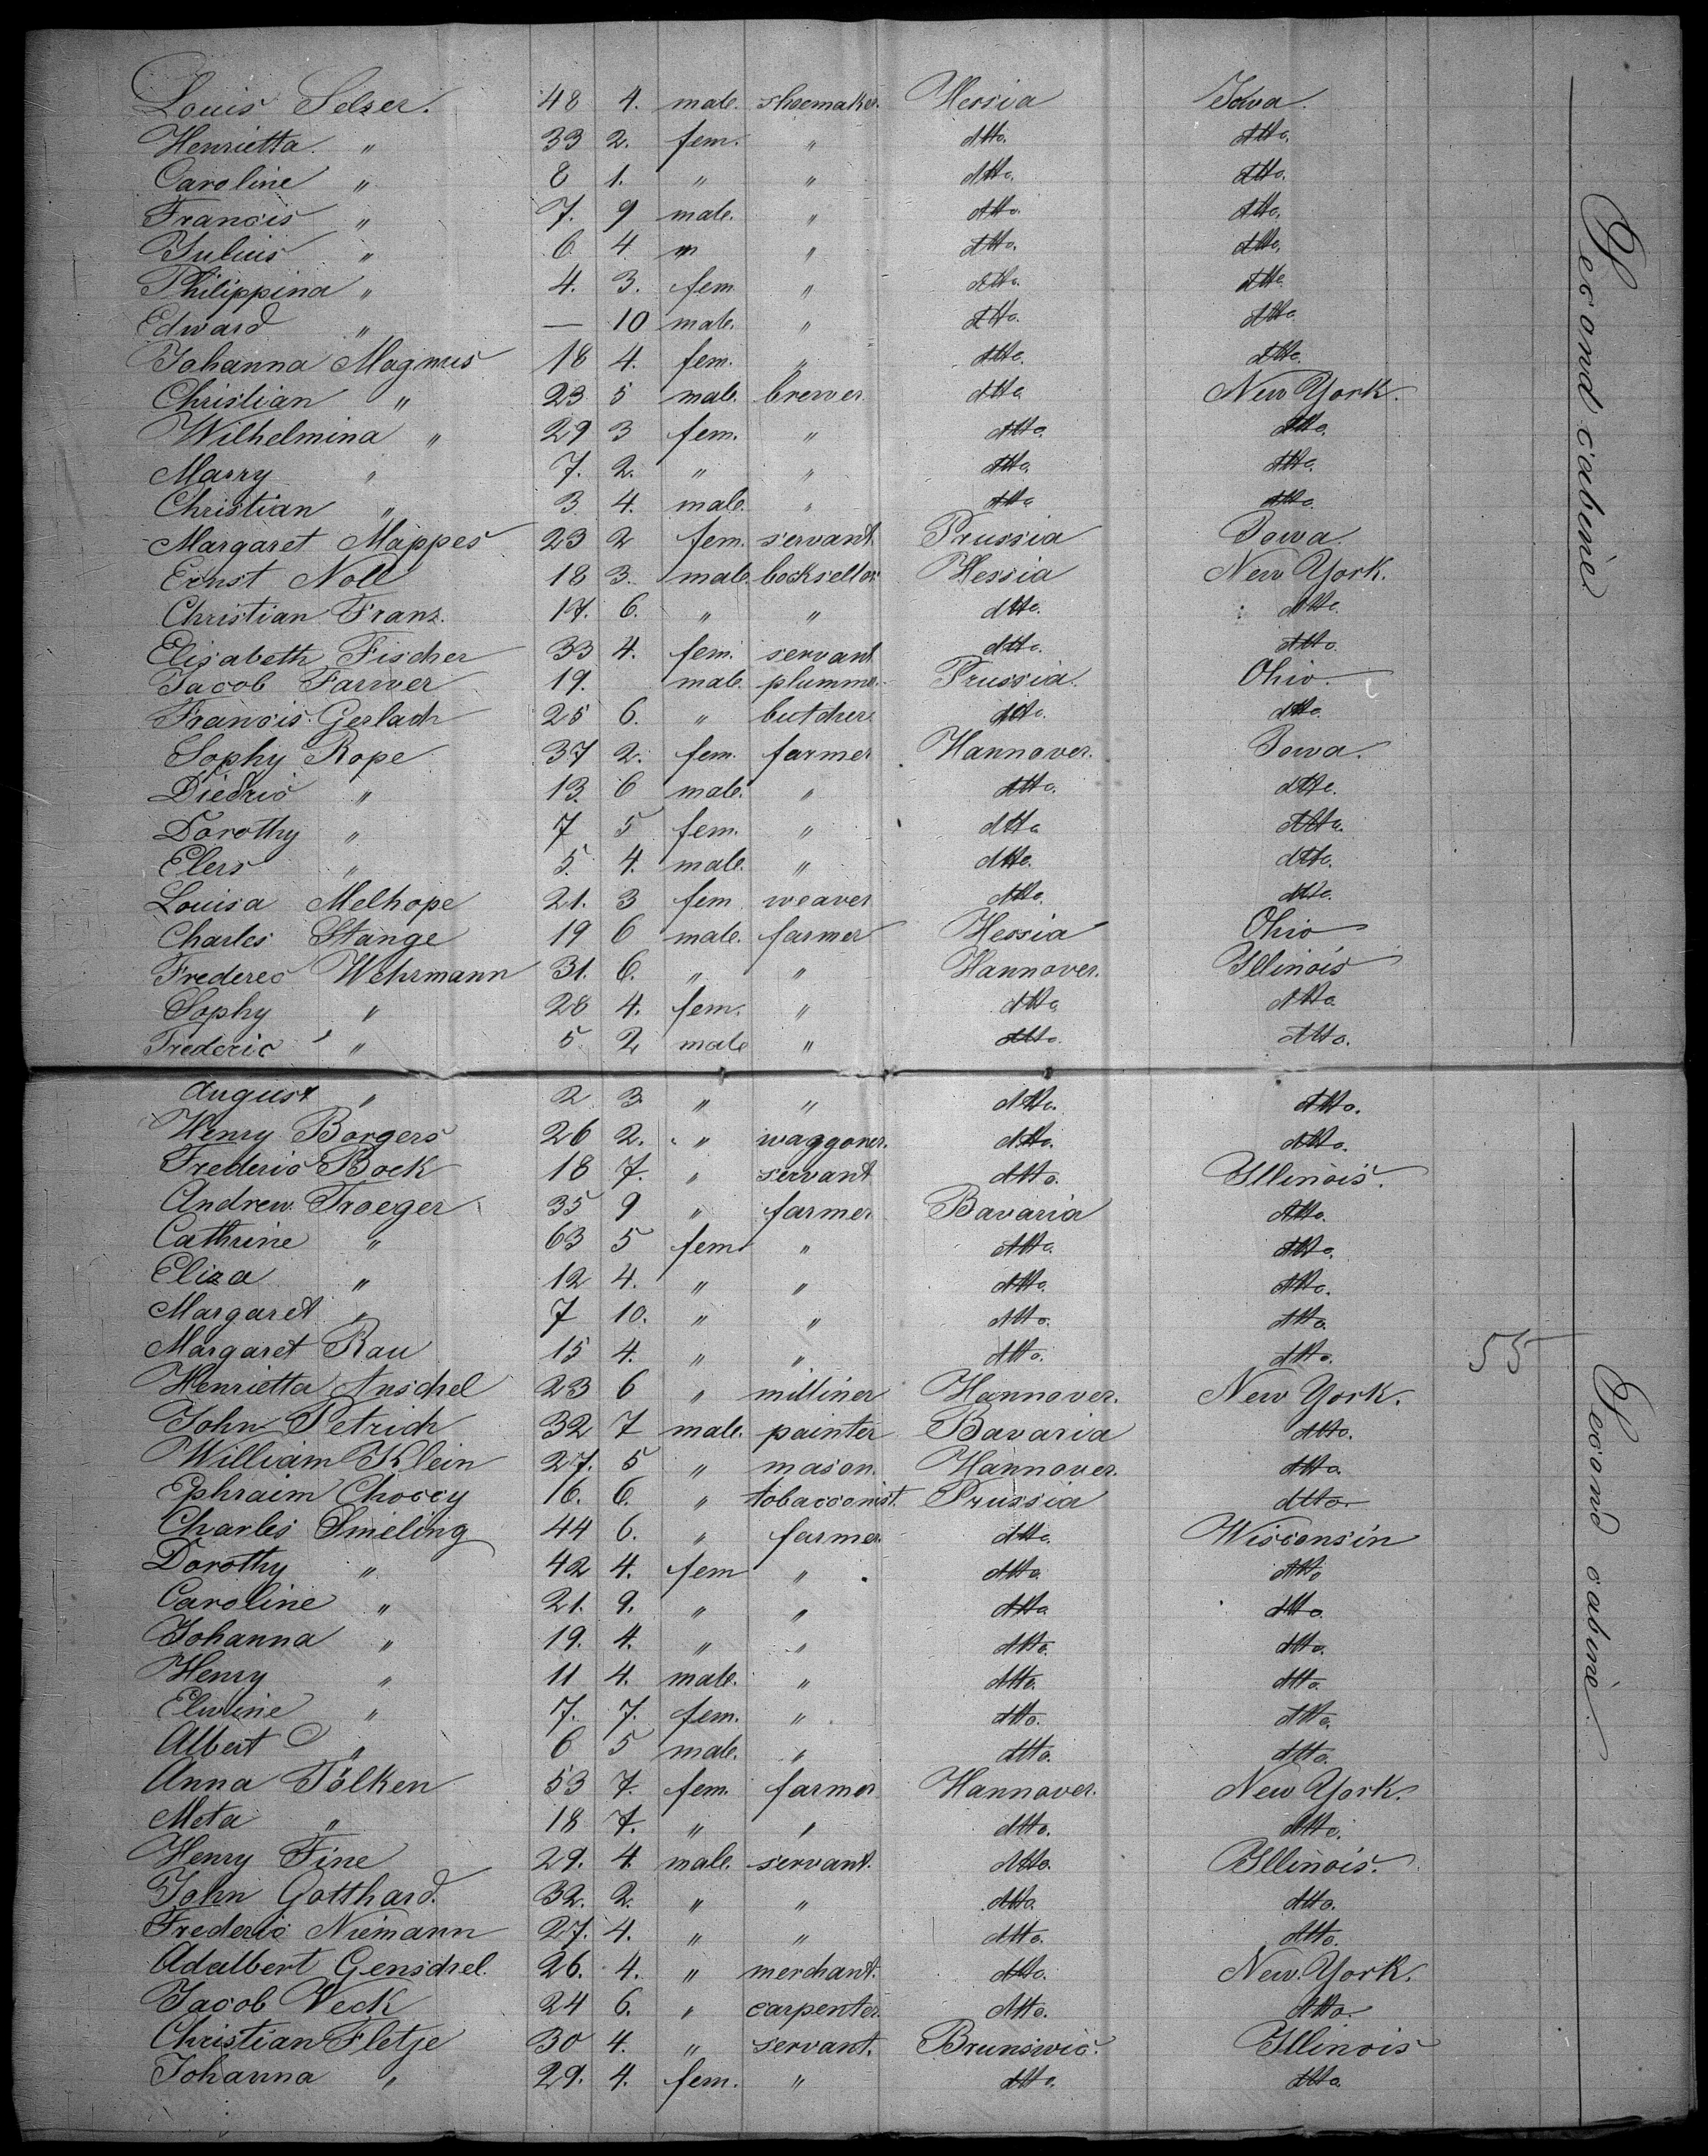 Louis Selzer. 48 4. male. shoemaker. Hessia Iowa.
Henrietta " 33 2. fem. " dtto. dtto.
Caroline " 8 1. " " dtto. dtto.
Francis " 7. 9 male. " dtto. dtto.
Julius " 6. 4. " " dtto. dtto.
Philippina " 4. 3. fem " dtto. dtto.
Edward " — 10 male. " dtto. dtto.
Johanna Magnus 18 4. fem. " dtto. dtto.
Christian " 23 5 male. brewer dtto. New York.
Wilhelmina " 29 3 fem. " dtto. dtto.
Marry " 7. 2. " " dtto. dtto.
Christian " 3 4. male. " dtto. dtto.
Margaret Mappes 23 2 fem. servant. Prussia Iowa.
Ernst Noll 18 3. male. bookseller Hessia New York.
Christian Franz. 17. 6. " " dtto. dtto.
Elisabeth Fischer 33 4. fem. servant dtto. dtto.
Jacob Farwer 19. male. plummer. Prussia. Ohio.
Francis Gerlach 25 6. " butcher. dtto. dtto.
Sophy Rope 37 2. fem. farmer Hannover. Iowa.
Diedric " 13. 6 male. " dtto. dtto.
Dorothy " 7 5 fem. " dtto. dtto.
Elers " 5. 4. male. " dtto. dtto.
Louisa Melhope 21. 3 fem. weaver dtto. dtto.
Charles Stange 19 6 male. farmer Hessia Ohio
Frederec Wehrmann 31. 6. " " Hannover. Illinois
Sophy " 28 4. fem. " dtto. dtto.
Frederic " 5 2 male " dtto. dtto.
August " 2 3 " " dtto. dtto.
Henry Borgers 26 2. " waggoner. dtto. dtto.
Frederic Bock 18 7. " servant dtto. Illinois.
Andrew Troeger 35 9 " farmer Bavaria dtto.
Cathrine " 63 5 fem " dtto. dtto.
Eliza " 12 4. " " dtto. dtto.
Margaret " 7 10. " " dtto. dtto.
Margaret Rau 15 4. " " dtto. dtto.
Henrietta Anschel 23 6 " milliner Hannover. New York.
John Petrich 32 7 male. painter Bavaria dtto.
William Klein 27. 5 " mason. Hannover. dtto.
Ephraim Choccy 16. 6. " tobacconist. Prussia dtto.
Charles Smeling 44 6. " farmer. dtto. Wisconsin
Dorothy " 42 4. fem " dtto. dtto.
Caroline " 21. 9. " " dtto. dtto.
Johanna " 19. 4. " " dtto. dtto.
Henry " 11 4. male. " dtto. dtto.
Elwine " 7. 7. fem. " dtto. dtto.
Albert " 6 5 male. " dtto. dtto.
Anna Tölken 53 7. fem. farmer Hannover. New York.
Meta " 18 7. " " dtto. dtto.
Henry Fine 29. 4. male. servant. dtto. Illinois.
John Gotthard. 32. 2. " " dtto. dtto.
Frederic Niemann 27. 4. " " dtto. dtto.
Adalbert Genschel. 26. 4. " merchant. dtto. New York.
Jacob Veck 24 6. " carpenter. dtto. dtto.
Christian Fletje 30 4. " servant. Brunswic. Illinois
Johanna " 29. 4. fem. " dtto. dtto.
55
Second cabine
Second cabine.